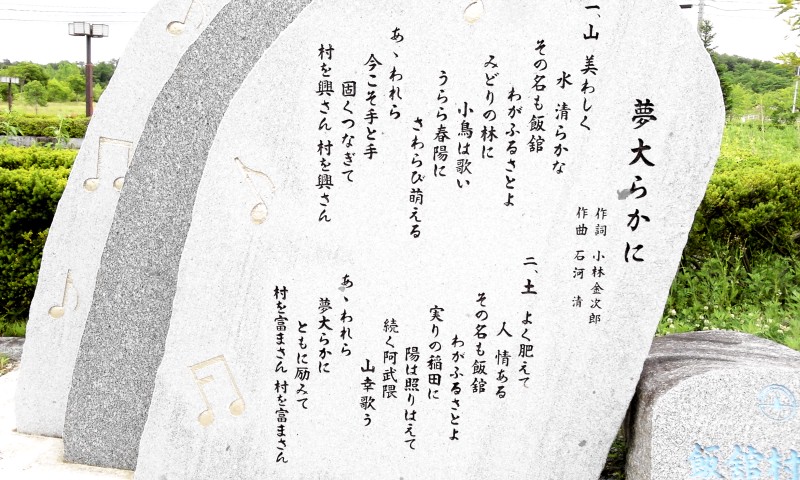 夢大らかに
作詞 小林金次郎
作曲 石河 清
一、山 美わしく
水 清らかな
その名も飯舘
わがふるさとよ
みどりの林に
小鳥は歌い
うらら春陽に
さわらび萌える
あゝわれら
今こそ手と手
固くつなぎて
村を興さん 村を興さん
二、土 よく肥えて
人 情ある
その名も飯舘
わがふるさとよ
実りの稲田に
陽は照りはえて
続く阿武隈
山幸歌う
あゝわれら
夢大らかに
ともに励みて
村を富まさん 村を富まさん
飯舘村